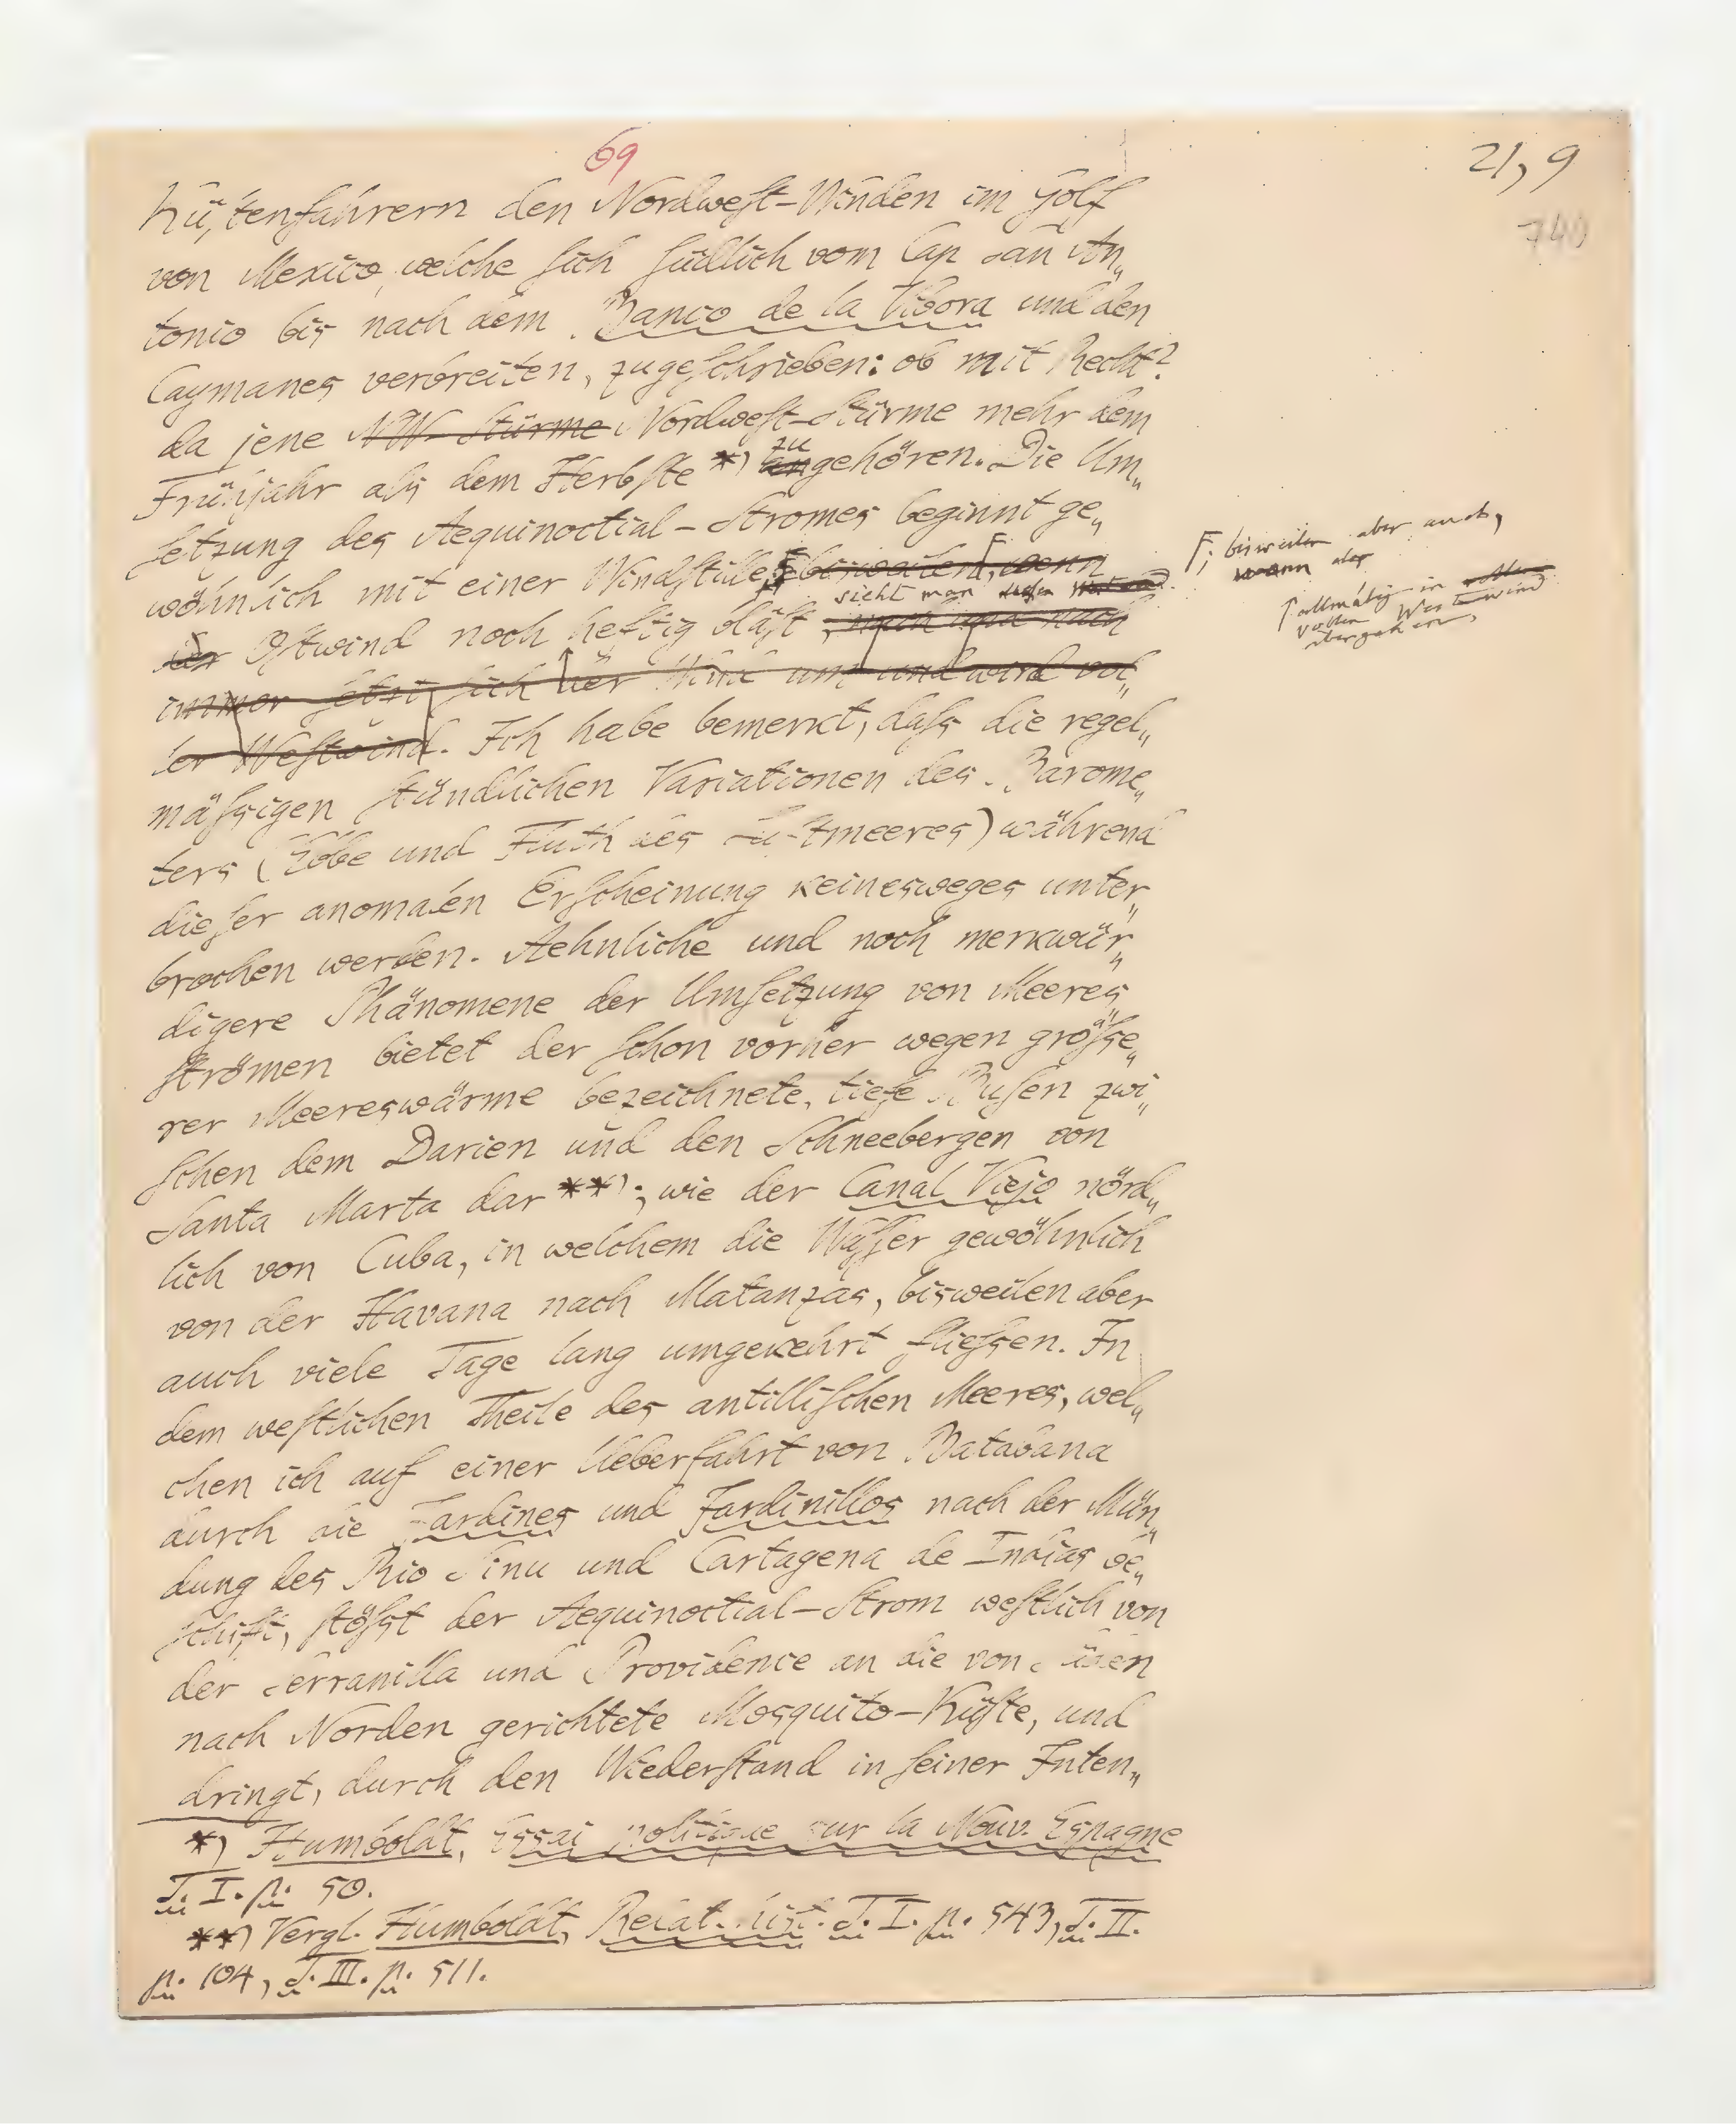 69
21, 9
740
Küstenfahrern den Nordwest-Winden im Golf
von Mexico, welche sich südlich vom Cap San An„
tonio bis nach dem Banco de la Vibora und den
Caymanes verbreiten, zugeschrieben: ob mit Recht?
da jene NW-Stürme Nordwest-Stürme mehr dem
zu
Frühjahr als dem Herbste *) angehören. Die Um„
setzung des Aequinoctial-Stromes beginnt ge„
wöhnlich mit einer Windstille, bisweilen, wenn
sieht man diesen
der Ostwind noch heftig bläst, nach und nach
immer setzt sich der Wind um und wird vol„
ler Westwind. Ich habe bemerkt, dass die regel„
mässigen stündlichen Variationen des Barome„
ters (Ebbe und Fluth des Luftmeeres) während
dieser anomalen Erscheinung keinesweges unter„
brochen werden. Aehnliche und noch merkwür„
digere Phänomene der Umsetzung von Meeres„
strömen bietet der schon vorher wegen grösse„
rer Meereswärme bezeichnete, tiefe Busen zwi„
schen dem Darien und den Schneebergen von
Santa Marta dar **); wie der Canal Viejo nörd„
lich von Cuba, in welchem die Wasser gewöhnlich
von der Havana nach Matanzas, bisweilen aber
auch viele Tage lang umgekehrt fliessen. In
dem westlichen Theile des antillischen Meeres, wel„
chen ich auf einer Ueberfahrt von Batabana
durch die Jardines und Jardinillos nach der Mün„
dung des Rio Sinu und Cartagena de Indias be„
schifft, stösst der Aequinoctial-Strom westlich von
der Serranilla und Providence an die von Süden
nach Norden gerichtete Mosquito-Küste, und
dringt, durch den Wiederstand in seiner Inten„
*) Humboldt, Essai politique sur la Nouv. Espagne
T. I. p. 50.
**) Vergl. Humboldt, Relat. hist. T. I. p. 543, T. II.
p. 104, T. III. p. 511.
F; bisweilen aber auch,
wann der
allmälig in
vollen Westwind
übergehen,